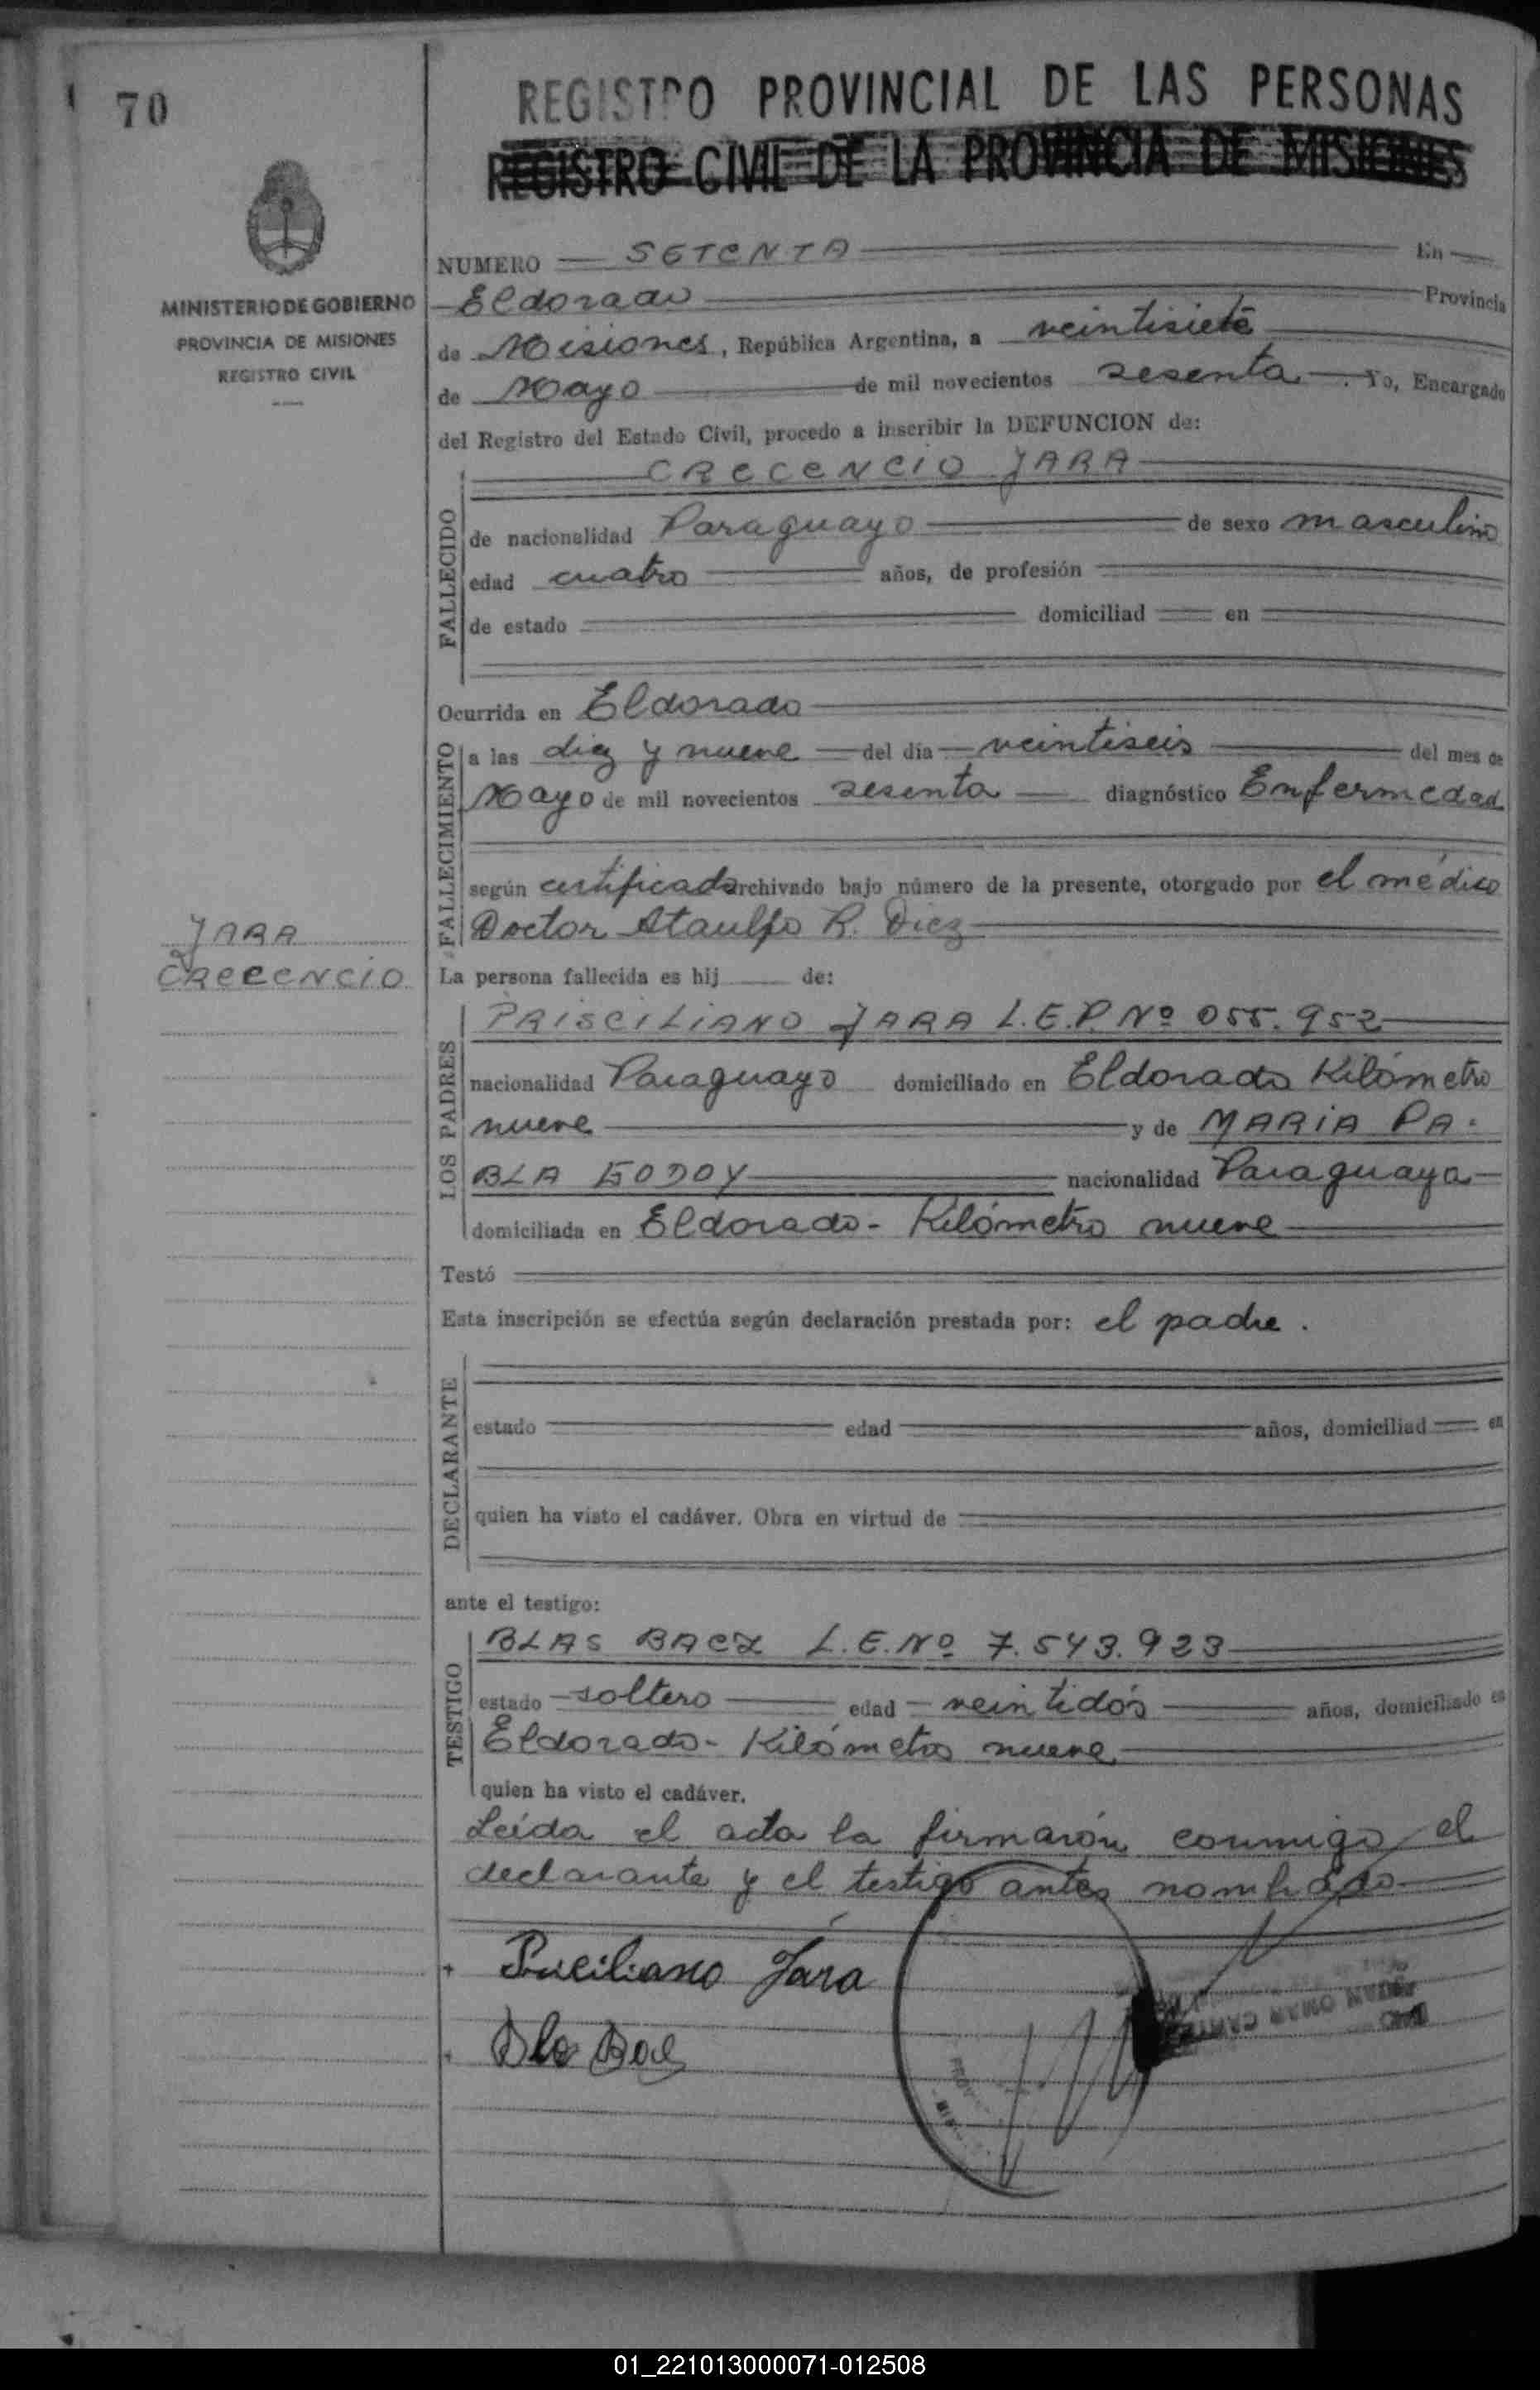 70
REGISTRO PROVINCIAL DE LAS PERSONAS
REGISTRO CIVIL DE LA PROVINCIA DE MISIONES
MINISTERIO DE GOBIERNO
PROVINCIA DE MISIONES
REGISTRO CIVIL
NUMERO SETENTA En
Eldorado Provincia
de Misiones, República Argentina, a veintisiete
de Mayo de mil novecientos sesenta. Yo, Encargado
del Registro del Estado Civil, procedo a inscribir la DEFUNCION de:
FALLECIDO
CRECENCIO JARA
de nacionalidad Paraguayo de sexo masculino
edad cuatro años, de profesión
de estado domiciliad en
Ocurrida en Eldorado
FALLECIMIENTO
a las diez y nueve del día veintiseis del mes de
Mayo de mil novecientos sesenta diagnóstico Enfermedad
según certificado archivado bajo número de la presente, otorgado por el médico
Doctor Ataulfo R. Diez
JARA
CRECENCIO
La persona fallecida es hij de:
LOS PADRES
PRISCILIANO JARA L.E.P. Nº 055.952
nacionalidad Paraguayo domiciliado en Eldorado Kilómetro
nueve y de MARIA PA-
BLA GODOY nacionalidad Paraguaya
domiciliada en Eldorado - Kilómetro nueve
Testó
Esta inscripción se efectúa según declaración prestada por: el padre.
DECLARANTE
estado edad años, domiciliad en
quien ha visto el cadáver. Obra en virtud de
ante el testigo:
TESTIGO
BLAS BAEZ L.E. Nº 7.543.923
estado soltero edad veintidós años, domiciliado en
Eldorado - Kilómetro nueve
quien ha visto el cadáver.
Leída el acta la firmarón conmigo el
declarante y el testigo antes nombrado
+ Prisciliano Jara
+
01_221013000071-012508